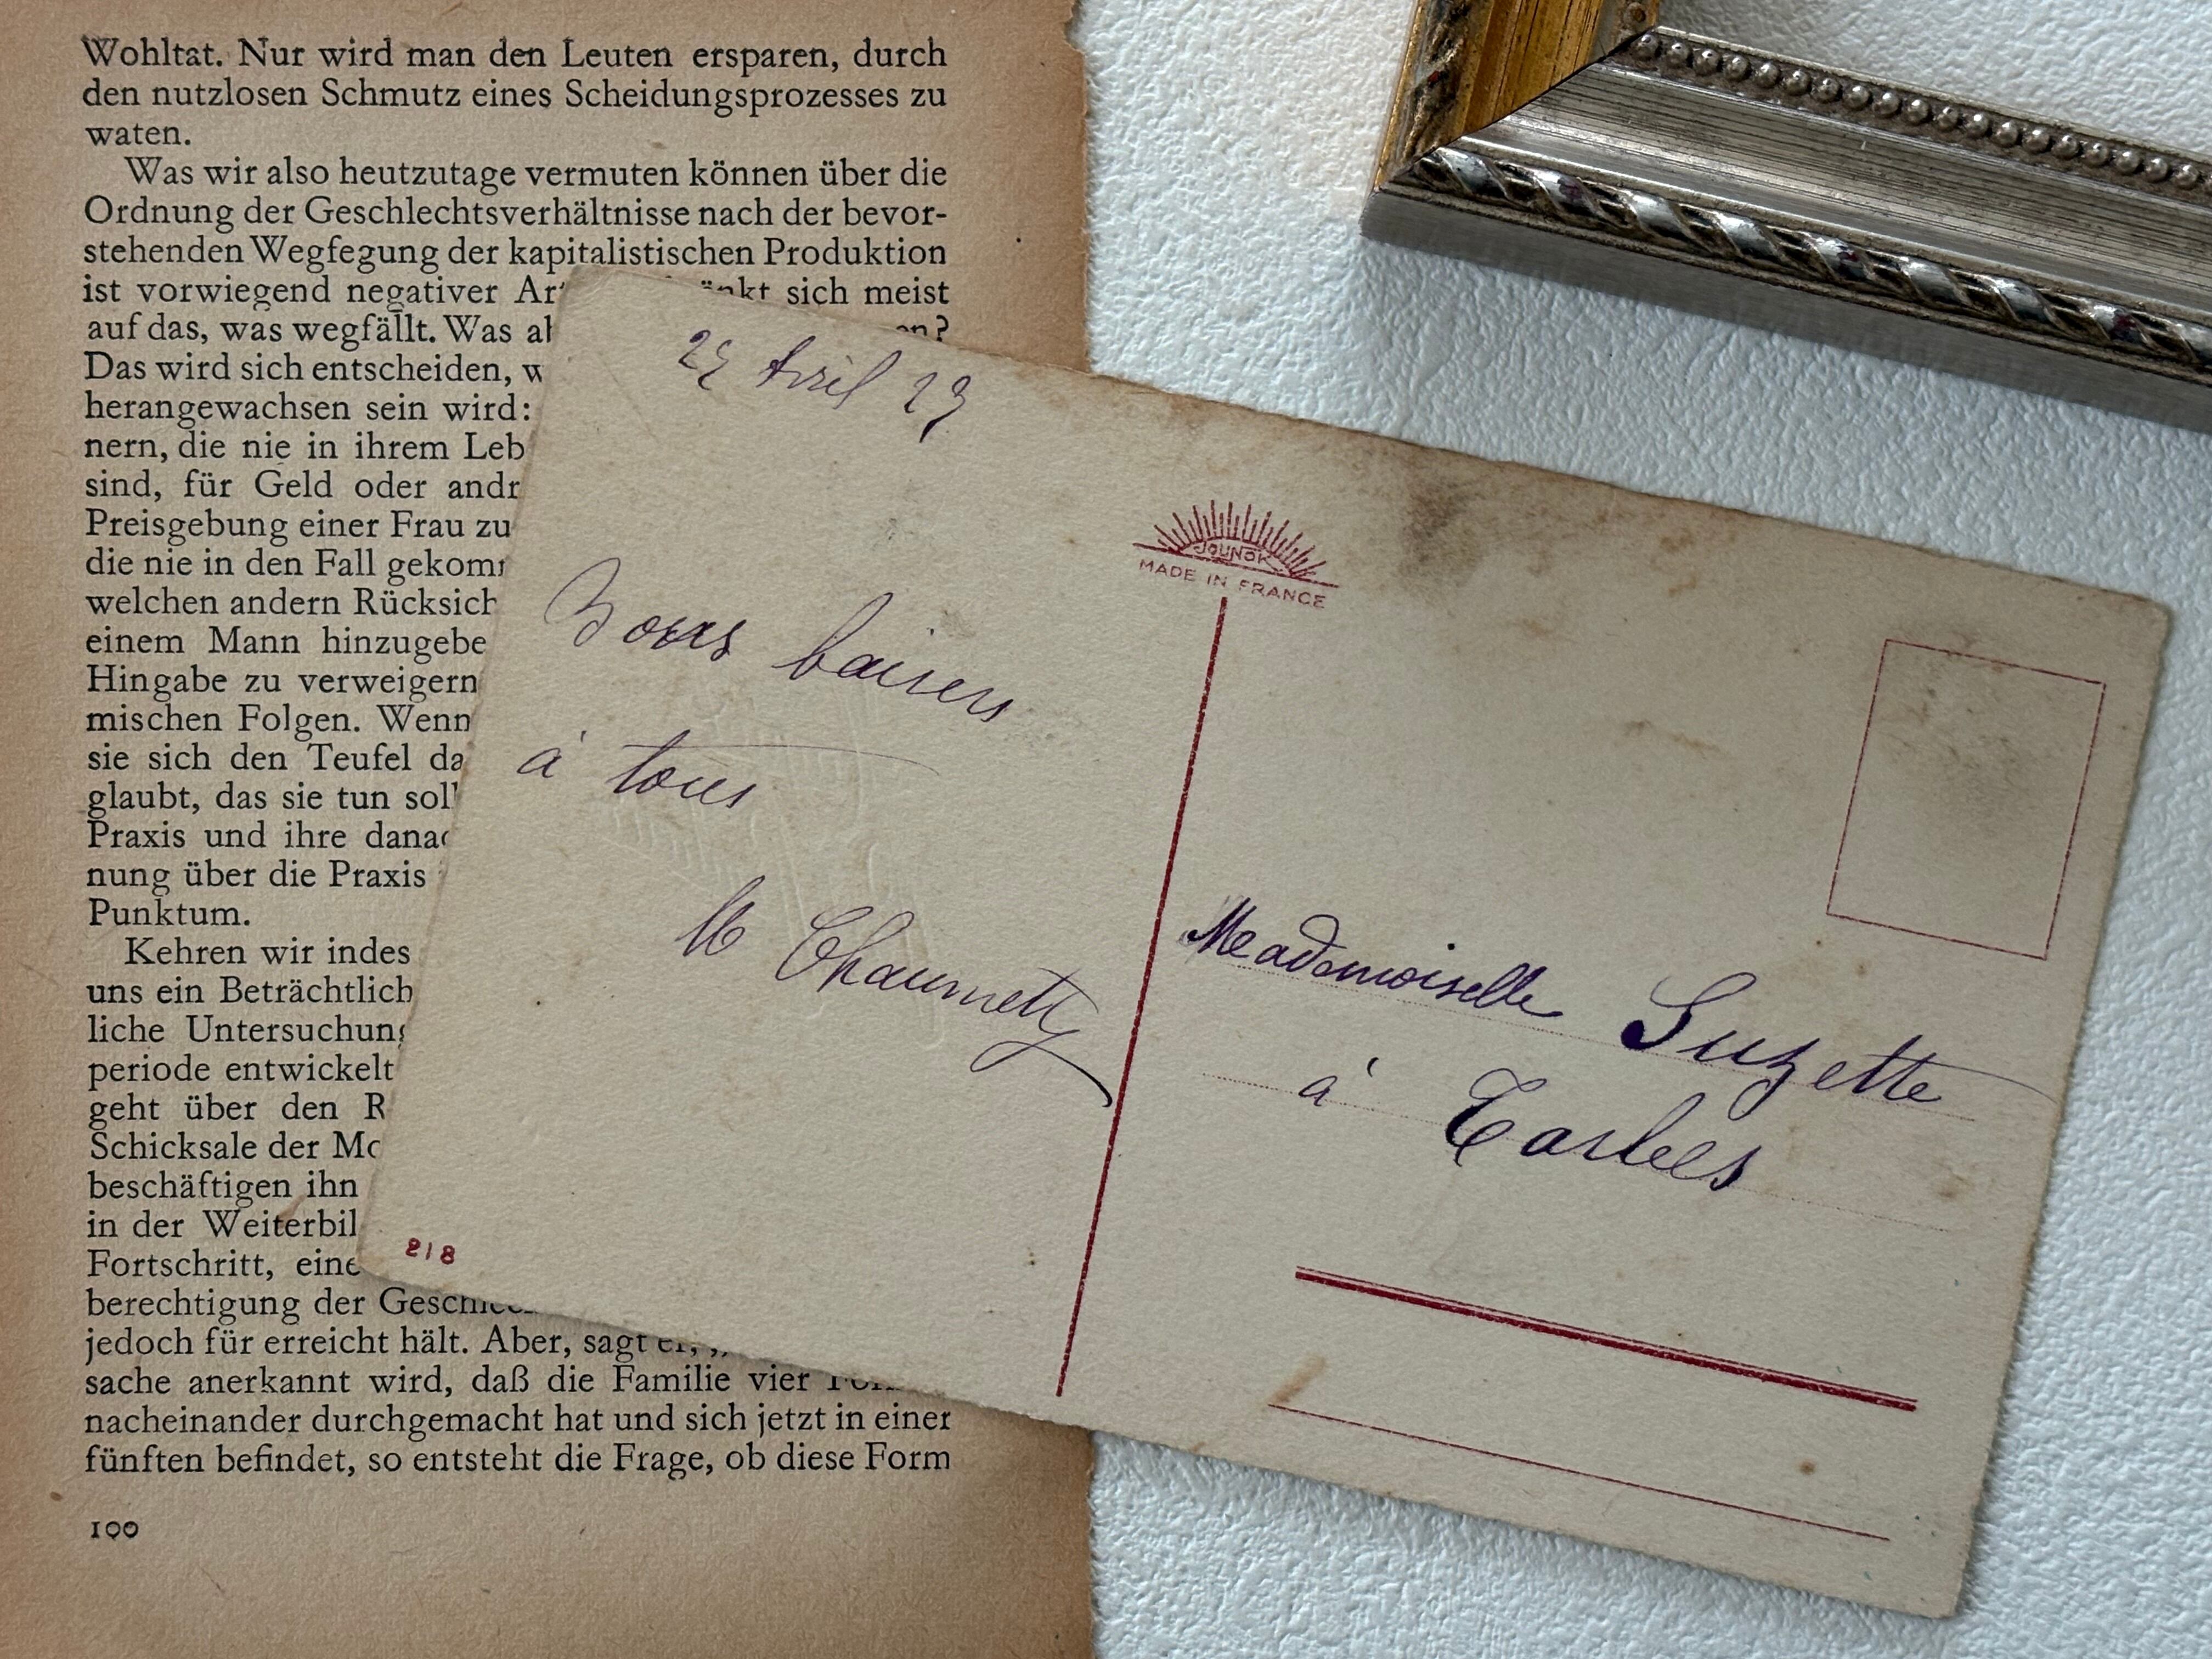 Wohltat. Nur wird man den Leuten ersparen, durch
den nutzlosen Schmutz eines Scheidungsprozesses zu
waten.
Was wir also heutzutage vermuten können über die
Ordnung der Geschlechtsverhältnisse nach der bevor-
stehenden Wegfegung der kapitalistischen Produktion
ist vorwiegend negativer sich meist
auf das, was wegfällt. Was
Das wird sich entscheiden,
herangewachsen sein wird:
nern, die nie in ihrem Leb
sind, für Geld oder andr
Preisgebung einer Frau zu
die nie in den Fall gekom
welchen andern Rücksich
einem Mann hinzugebe
Hingabe zu verweigern
mischen Folgen. Wenn
sie sich den Teufel da
glaubt, das sie tun soll
Praxis und ihre danac
nung über die Praxis
Punktum.
Kehren wir indes
uns ein Beträchtlich
liche Untersuchung
periode entwickelt
geht über den R
Schicksale der Mo
beschäftigen ihn
in der Weiterbil
Fortschritt, eine
berechtigung der
jedoch für erreicht hält. Aber, sagt er,
sache anerkannt wird, daß die Familie vier
nacheinander durchgemacht hat und sich jetzt in einer
fünften befindet, so entsteht die Frage, ob diese Form
190
Avril
Bons baisers
à tous
218
MADE IN FRANCE
Mademoiselle Suzette
à Tarbes